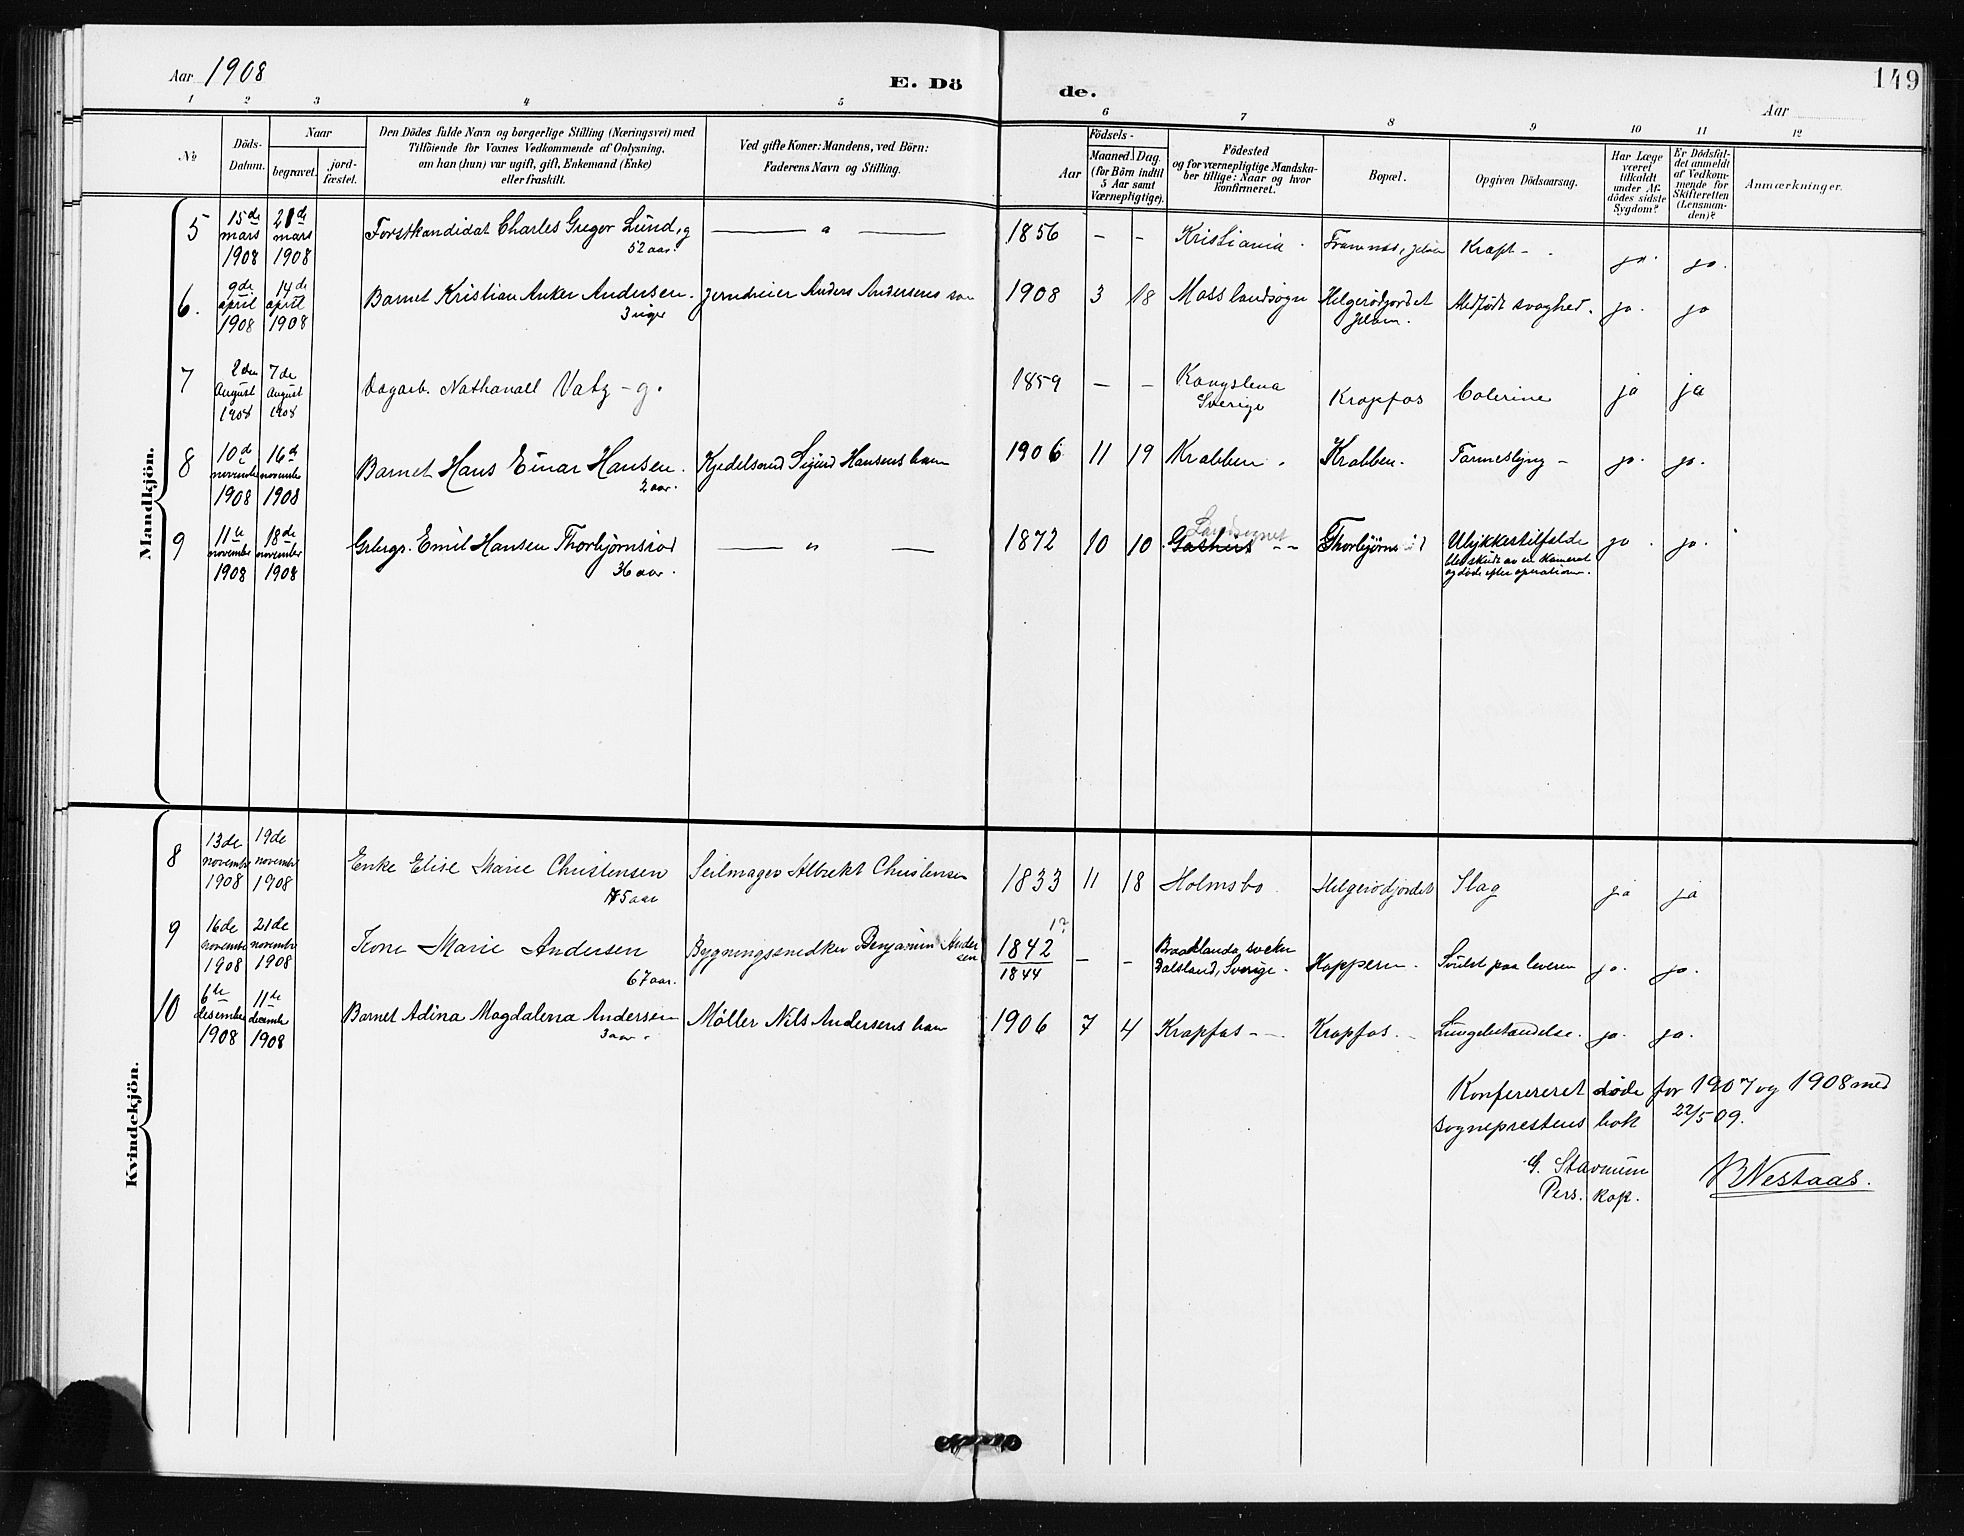 Aar 1908
E. Dö
de.
149
Aar
1 2 3 4 5 6 7 8 9 10 11 12
No
Döds-
Datum.
Naar
begravet.
jord-
fæstet.
Den Dödes fulde Navn og borgerlige Stilling (Næringsvei) med
Tilföiende for Voxnes Vedkommende af Oplysning,
om han (hun) var ugift, gift, Enkemand (Enke)
eller fraskilt.
Ved gifte Koner: Mandens, ved Börn:
Faderens Navn og Stilling.
Aar
Födsels-
Maaned. Dag.
(for Börn indtil
5 Aar samt
Værnepligtige).
Födested
og for værnepligtige Mandska-
ber tillige: Naar og hvor
konfirmeret.
Bopæl.
Opgiven Dödsaarsag.
Har Læge
været
tilkaldt
under Af-
dödes sidste
Sygdom?
Er Dödsfal-
det anmeldt
af Vedkom-
mende for
Skifteretten
(Lensman-
den)?
Anmærkninger.
Mandkjön.
5
15de
mars
1908
21de
mars
1908
Forstkandidat Charles Gregor Lund, g
52 aar.
— " —
1856 - -
Kristiania
Framnæs, Jeløen
Kræft -
ja. ja.
6.
9de
april
1908
14de
april
1908
Barnet Kristian Anker Andersen.
3 uger
Jerndreier Anders Andersens søn
1908 3 18
Moss landsogn
Helgerødjordet
Jeløen.
Medfødt svaghed.
ja. ja
7
2den
August
1908
7de
August
1908
Dagarb. Nathanall Vatz - g.
1859 — -
Kongslena
Sverige
Krapfos
Colerine
ja ja
8
10de
november
1908
16de
november
1908
Barnet Hans Einar Hansen.
2 aar.
Kjedelsmed Sigurd Hansens barn
1906 11 19
Krabben.
Krabben.
Tarmeslyng -
ja. ja.
9
11te
november
1908
18de
november
1908
Grbrgr. Emil Hansen Thorbjørnsrød
36 aar.
— " —
1872 10 10
Landsognet
Thorbjørnsrød
Ulykkestilfælde
blev skudt av en kamerat
og døde efter operationen.
ja. ja.
Kvindekjön.
8
13de
november
1908
19de
november
1908
Enke Elise Marie Christensen
75 aar
Seilmager Albrekt Christensen
1833 11 18
Holmsbo.
Helgerødjordet
Slag
ja ja
9
16de
november
1908
21de
november
1908
Kone Marie Andersen
67 aar.
Bygningssnedker Benjamin Ander
sen
1?
1842
1844
- -
Dalsland, Sverige.
Koppern.
Svulst paa leveren
ja. ja.
10
6te
desember
1908
11te
december
1908
Barnet Adina Magdalena Andersen
3 aar.
Møller Nils Andersens barn
1906 7 4
Krapfos - -
Krapfos. -
Lungebetændelse.
ja. ja.
Konfereret døde for 1907 og 1908 med
sogneprestens bok 22/5 09.
G. Stavnum
Pers. kap.
BNestaas.